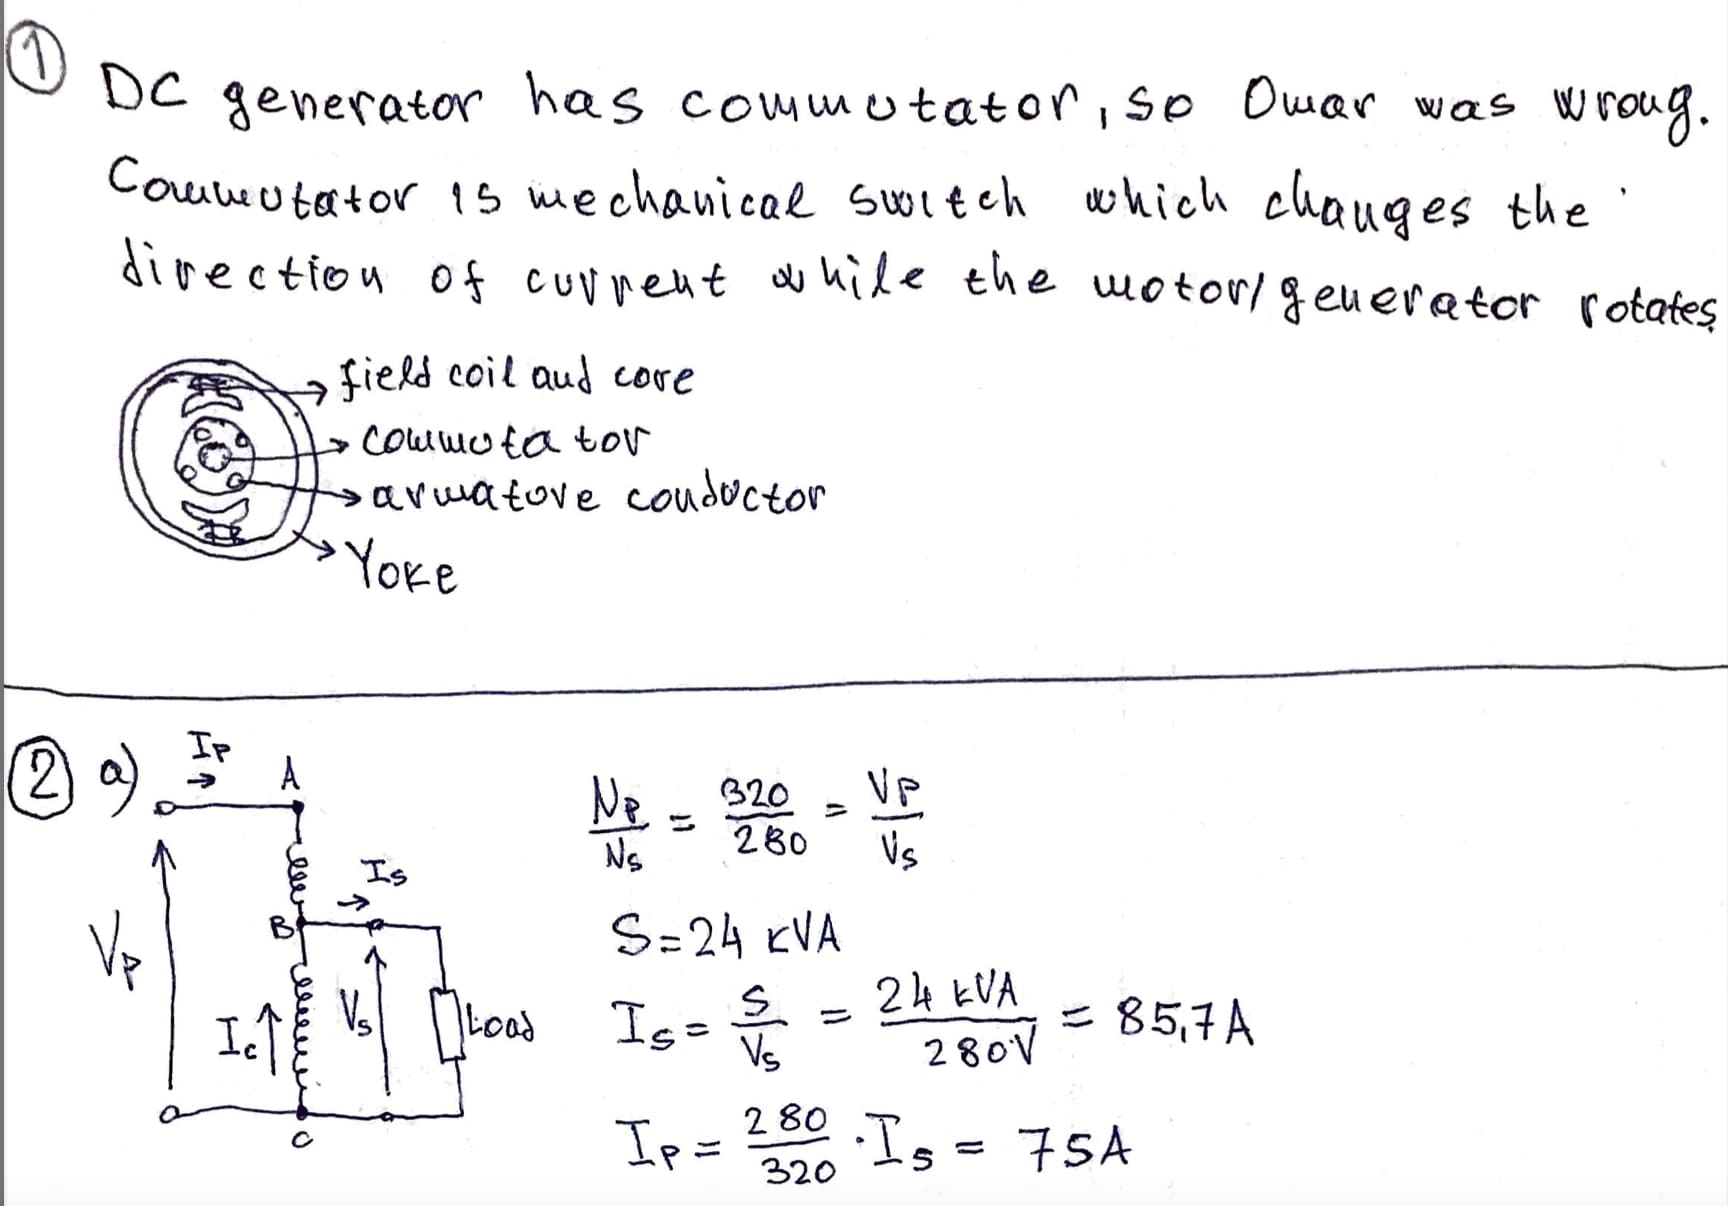 ①
DC generator has commutator, so Omar was wrong.
Commutator is mechanical switch which changes the
direction of current while the motor/generator rotates
field coil and core
commutator
armature conductor
Yoke
② a)
Ip
A
Np/Ns = 320/280 = Vp/Vs
Is
B
Vp
S=24 kVA
Ic
Vs
Load
Is = S/Vs = 24 kVA/280V = 85,7A
C
Ip = 280/320 · Is = 75A